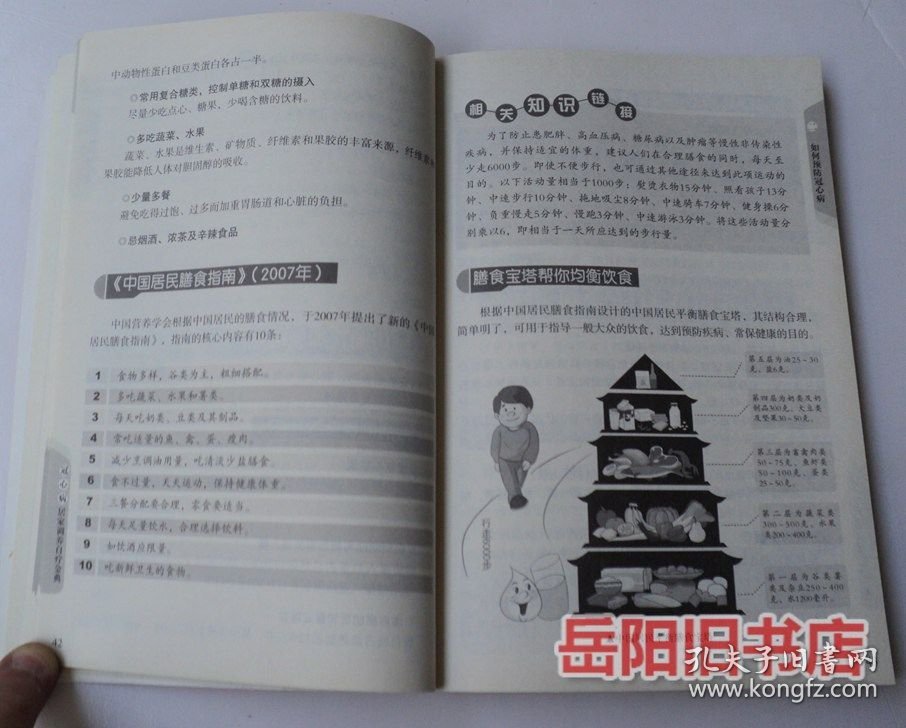 中动物性蛋白和豆类蛋白各占一半。
◎常用复合糖类，控制单糖和双糖的摄入
尽量少吃点心、糖果，少喝含糖的饮料。
◎多吃蔬菜、水果
蔬菜、水果是维生素、矿物质、纤维素和果胶的丰富来源，纤维素
果胶能降低人体对胆固醇的吸收。
◎少量多餐
避免吃得过饱、过多而加重胃肠道和心脏的负担。
◎忌烟酒、浓茶及辛辣食品
《中国居民膳食指南》（2007年）
中国营养学会根据中国居民的膳食情况，于2007年提出了新的《中国
居民膳食指南》，指南的核心内容有10条：
1 食物多样，谷类为主，粗细搭配。
2 多吃蔬菜、水果和薯类。
3 每天吃奶类、豆类及其制品。
4 常吃适量的鱼、禽、蛋、瘦肉。
5 减少烹调油用量，吃清淡少盐膳食。
6 食不过量，天天运动，保持健康体重。
7 三餐分配要合理，零食要适当。
8 每天足量饮水，合理选择饮料。
9 如饮酒应限量。
10 吃新鲜卫生的食物。
冠心病居家调养自疗金典
42
相关知识链接
为了防止患肥胖、高血压病、糖尿病以及肿瘤等慢性非传染性
疾病，并保持适宜的体重，建议人们在合理膳食的同时，每天至
少走6000步。即使不便步行，也可通过其他途径来达到此项运动的
目的。以下活动量相当于1000步：熨烫衣物15分钟、照看孩子13分
钟、中速步行10分钟、拖地吸尘8分钟、中速骑车7分钟、健身操6分
钟、负重慢走5分钟、慢跑3分钟、中速游泳3分钟。将这些活动量分
别乘以6，即相当于一天所应达到的步行量。
如何预防冠心病
膳食宝塔帮你均衡饮食
根据中国居民膳食指南设计的中国居民平衡膳食宝塔，其结构合理，
简单明了，可用于指导一般大众的饮食，达到预防疾病、常保健康的目的。
第五层为油25~30
克、盐6克。
第四层为奶类及奶
制品300克、大豆类
及坚果30~50克。
第三层为畜禽肉类
50~75克、鱼虾类
50~100克、蛋类
25~50克。
第二层为蔬菜类
300~500克、水果
类200~400克。
第一层为谷类薯
类及杂豆250~400
克、水1200毫升。
行走6000步
中国居民平衡膳食宝塔
岳阳旧书店
孔夫子旧书网
www.kongfz.com